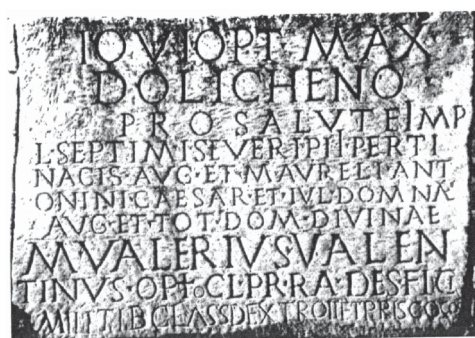 IOVI OPT MAX
DOLICHENO
PRO SALVTE IMP
L·SEPTIMI SEVERI PII·PERTI
NACIS·AVG·ET·M AVRELI ANT
ONINI·CAESAR ET·IVL·DOMNAE
AVG·ET·TOT·DOM·DIVINAE
M VALERIVS VALEN
TINVS·OPTIO CL·PR·RA·
CLASS DEXTRO II ET PRISCO